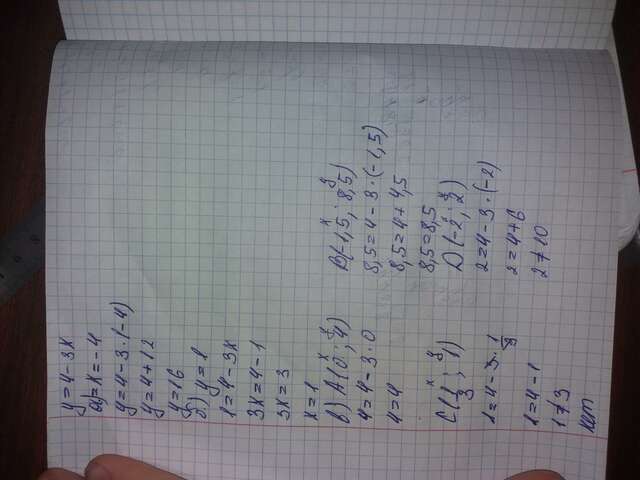 y = 4 - 3x
а) x = -4
y = 4 - 3 · (-4)
y = 4 + 12
y = 16
б) y = 1
1 = 4 - 3x
3x = 4 - 1
3x = 3
x = 1
в) A(0 ; 4)
x y
4 = 4 - 3 · 0
4 = 4
C(1/3 ; 1)
x y
1 = 4 - 3 · 1/3
1 = 4 - 1
1 ≠ 3
нет
B(-1,5 ; 8,5)
x y
8,5 = 4 - 3 · (-1,5)
8,5 = 4 + 4,5
8,5 = 8,5
D(-2 ; 2)
x y
2 = 4 - 3 · (-2)
2 = 4 + 6
2 ≠ 10